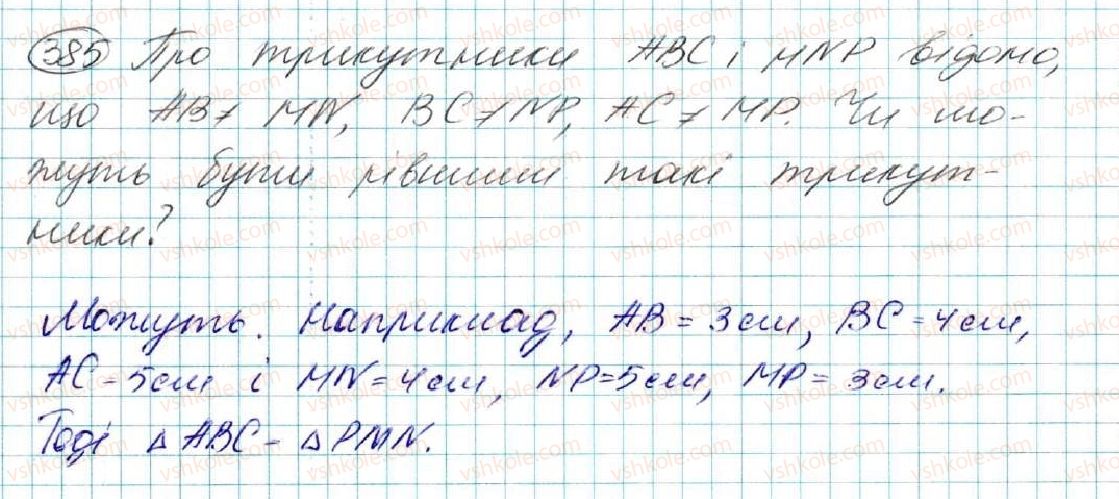 385 Про трикутники ABC і MNP відомо,
що AB ≠ MN, BC ≠ NP, AC ≠ MP. Чи мо-
жуть бути рівними такі трикут-
ники?
Можуть. Наприклад, AB = 3 см, BC = 4 см,
AC = 5 см і MN = 4 см, NP = 5 см, MP = 3 см.
Тоді △ABC = △PMN.